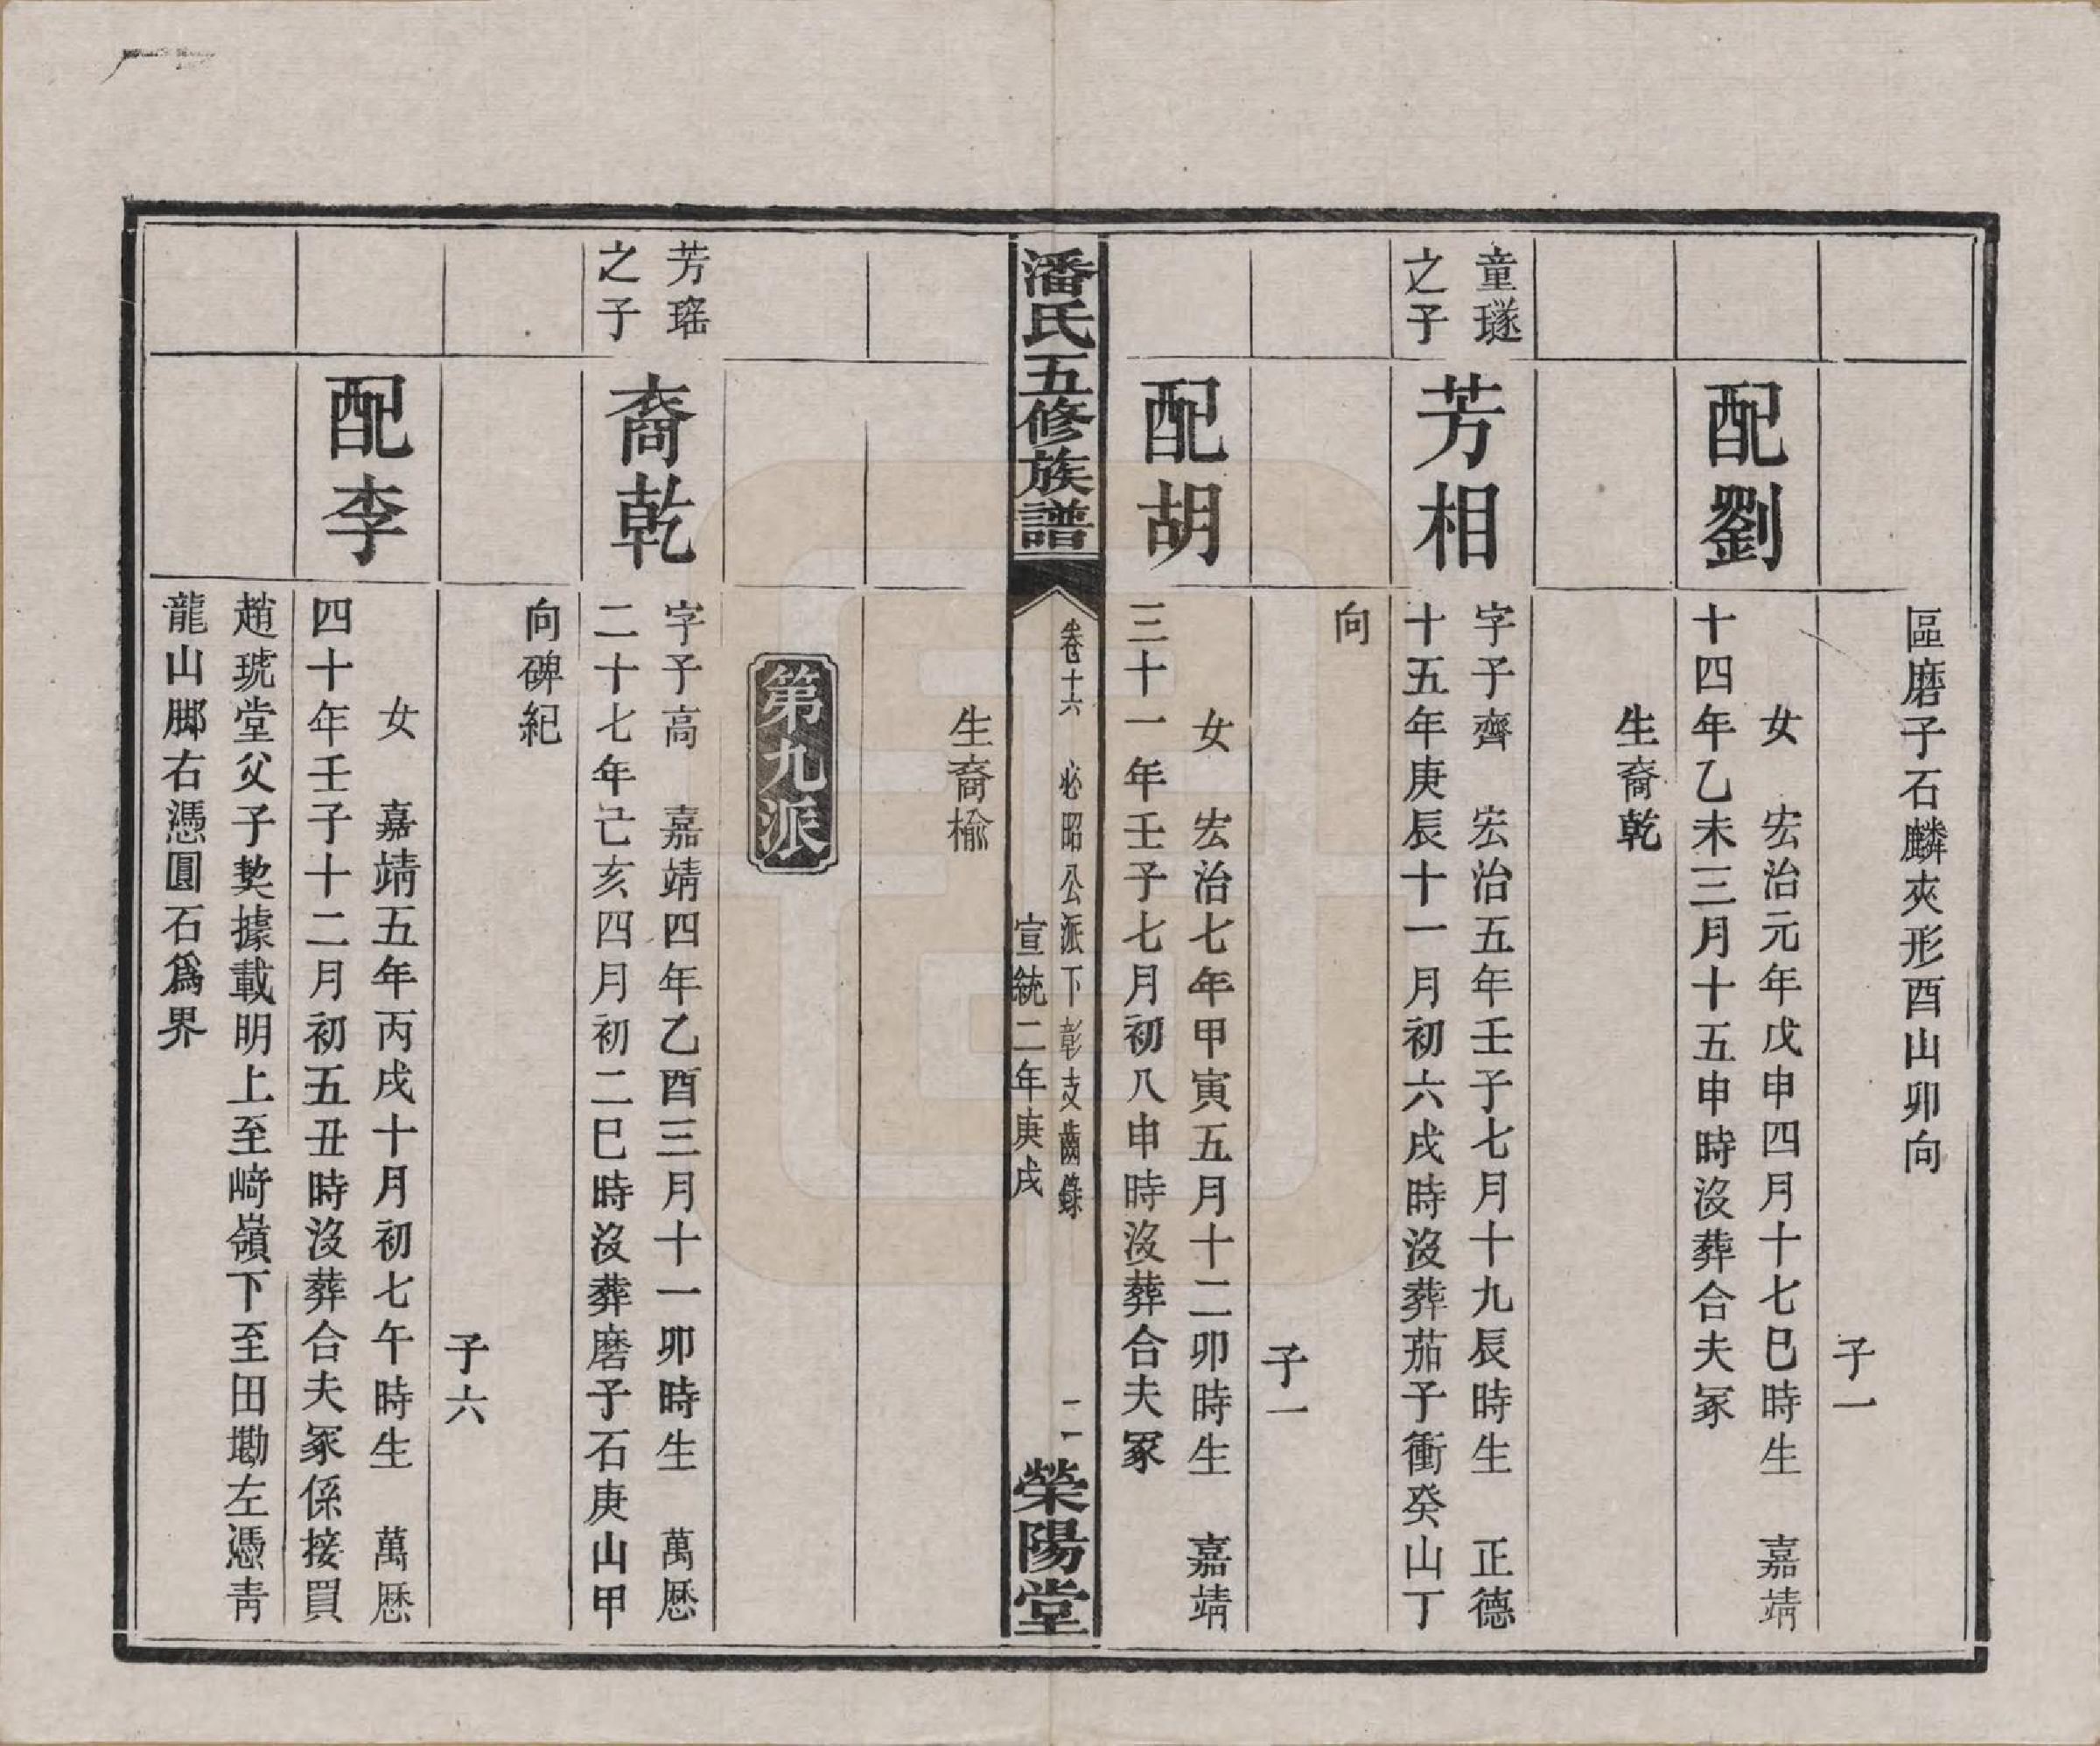 區磨子石麟夾形酉山卯向
子一
配劉
女　宏治元年戊申四月十七巳時生　嘉靖
十四年乙未三月十五申時沒葬合夫冢
生裔乾
童璲
之子
芳相
字子齊　宏治五年壬子七月十九辰時生　正德
十五年庚辰十一月初六戌時沒葬茄子衝癸山丁
向
子一
配胡
女　宏治七年甲寅五月十二卯時生　嘉靖
三十一年壬子七月初八申時沒葬合夫冢
潘氏五修族譜
卷十六　必昭公派下彰支齒錄　二
宣統二年庚戌
榮陽堂
生裔榆
第九派
芳瑤
之子
裔乾
字子高　嘉靖四年乙酉三月十一卯時生　萬歷
二十七年己亥四月初二巳時沒葬磨子石庚山甲
向碑紀
子六
配李
女　嘉靖五年丙戌十月初七午時生　萬歷
四十年壬子十二月初五丑時沒葬合夫冢係接買
趙琥堂父子契據載明上至崎嶺下至田墈左憑青
龍山腳右憑圓石爲界